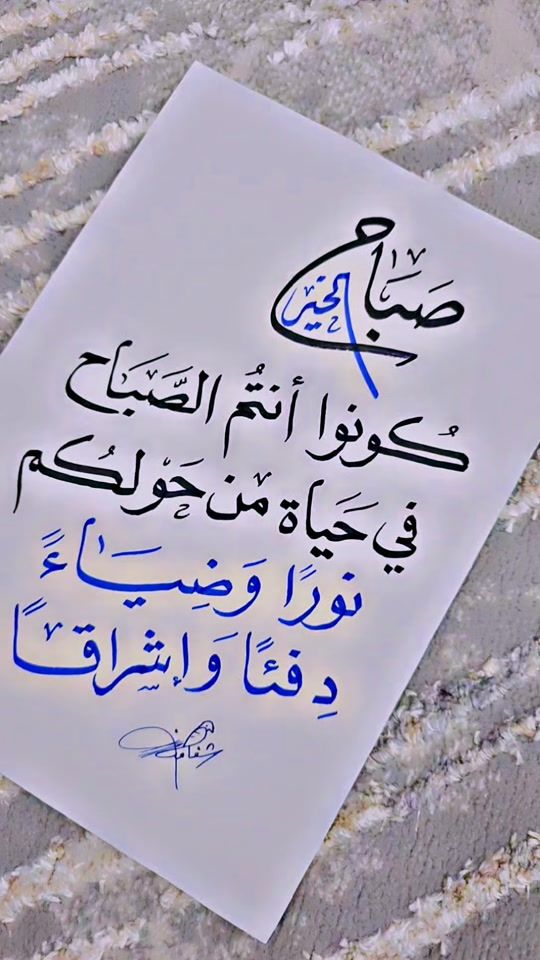 صَبَاح الخير
كُونوا أنتُم الصَّبَاح
في حَيَاة من حَولكُم
نورًا وَضِيَاءً
دِفئًا وَإشراقًا